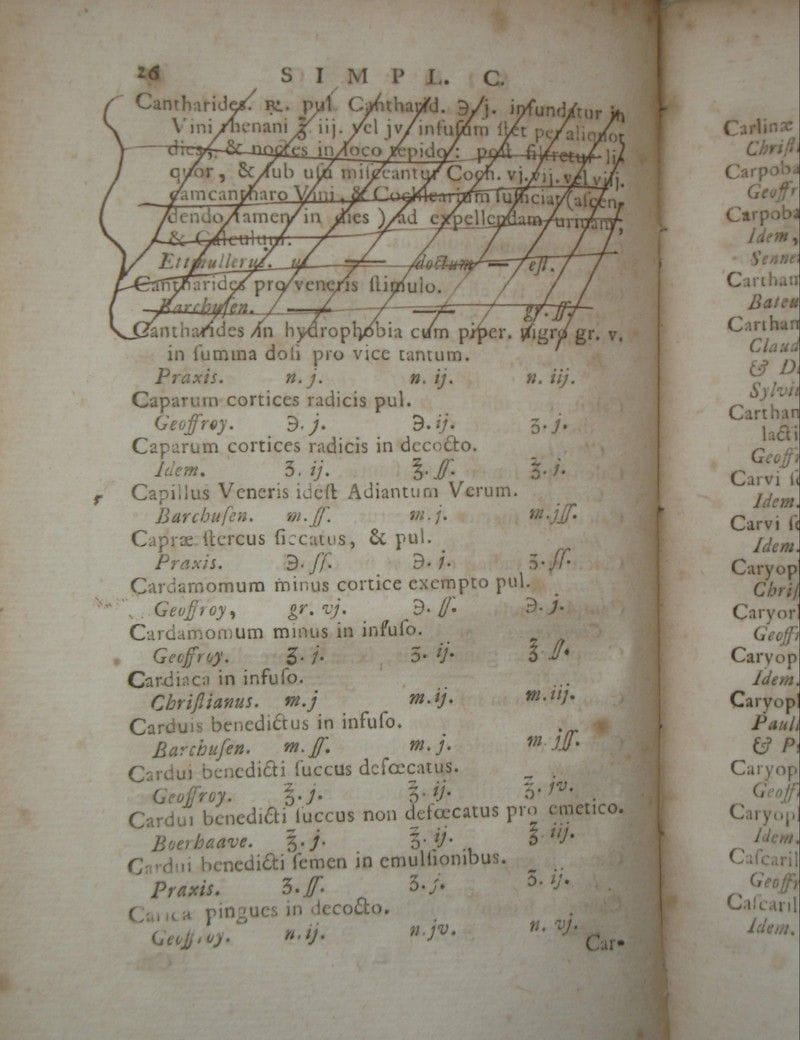 26
SIMPL. C.
Cantharides. ℞. pul. Cantharid. ℈ j. infundatur in
Vini rhenani ℥ iij. vel jv, infusum stet per aliquot
dies, & noctes in loco tepido: post filtretur li-
quor, & sub usu misceantur Coch. vj. vij. vel viij.
cum cantharo Vini, & Cochlearium sufficiat (ascen-
dendo tamen in dies) ad expellendam urinam,
& Calculum.
Ettmullerus. ut — doctum — est.
Cantharides pro veneris stimulo.
Barchusen. — — gr. ſſ.
Cantharides in hydrophobia cum piper. nigro gr. v.
in summa dosi pro vice tantum.
Praxis. n. j. n. ij. n. iij.
Caparum cortices radicis pul.
Geoffroy. ℈. j. ℈. ij. ʒ. j.
Caparum cortices radicis in decocto.
Idem. ʒ. ij. ℥. ſſ. ℥. j.
Capillus Veneris idest Adiantum Verum.
Barchusen. m. ſſ. m. j. m. jſſ.
Capræ stercus siccatus, & pul.
Praxis. ℈. ſſ. ℈. j. ʒ. ſſ.
Cardamomum minus cortice exempto pul.
Geoffroy, gr. vj. ℈. ſſ. ℈. j.
Cardamomum minus in infuso.
Geoffroy. ʒ. j. ʒ. ij. ℥ ſſ.
Cardiaca in infuso.
Christianus. m. j m. ij. m. iij.
Carduis benedictus in infuso.
Barchusen. m. ſſ. m. j. m. jſſ.
Cardui benedicti succus defœcatus.
Geoffroy. ℥. j. ℥. ij. ℥. jv.
Cardui benedicti succus non defœcatus pro emetico.
Boerhaave. ℥. j. ℥. ij. ℥ iij.
Cardui benedicti semen in emulsionibus.
Praxis. ʒ. ſſ. ʒ. j. ʒ. ij.
Carica pingues in decocto.
Geoffroy. n. ij. n. jv. n. vj.
Car-
Carlinæ
Christ
Carpoba
Geoffr
Carpoba
Idem,
Senner
Cartham
Bateu
Cartham
Claud
& D
Sylvii
Carthan
lacti
Geoffr
Carvi se
Idem.
Carvi se
Idem.
Caryop
Chris
Caryop
Geoffr
Caryop
Idem.
Caryopl
Paull
& P
Caryop
Geoff
Caryopl
Idem.
Cascaril
Geoffr
Cascaril
Idem.